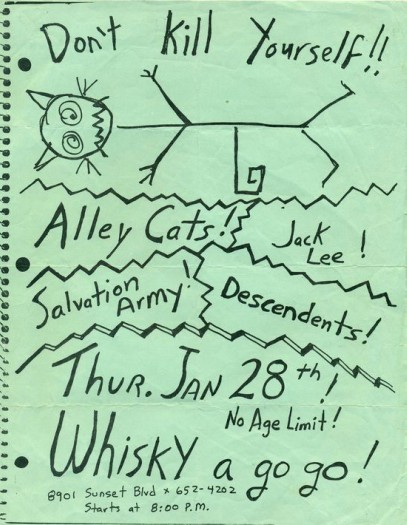 Don't Kill Yourself!!
Alley Cats!
Jack Lee!
Salvation Army
Descendents!
Thur. Jan 28th!
No Age Limit!
Whisky a go go!
8901 Sunset Blvd x 652-4202
Starts at 8:00 P.M.